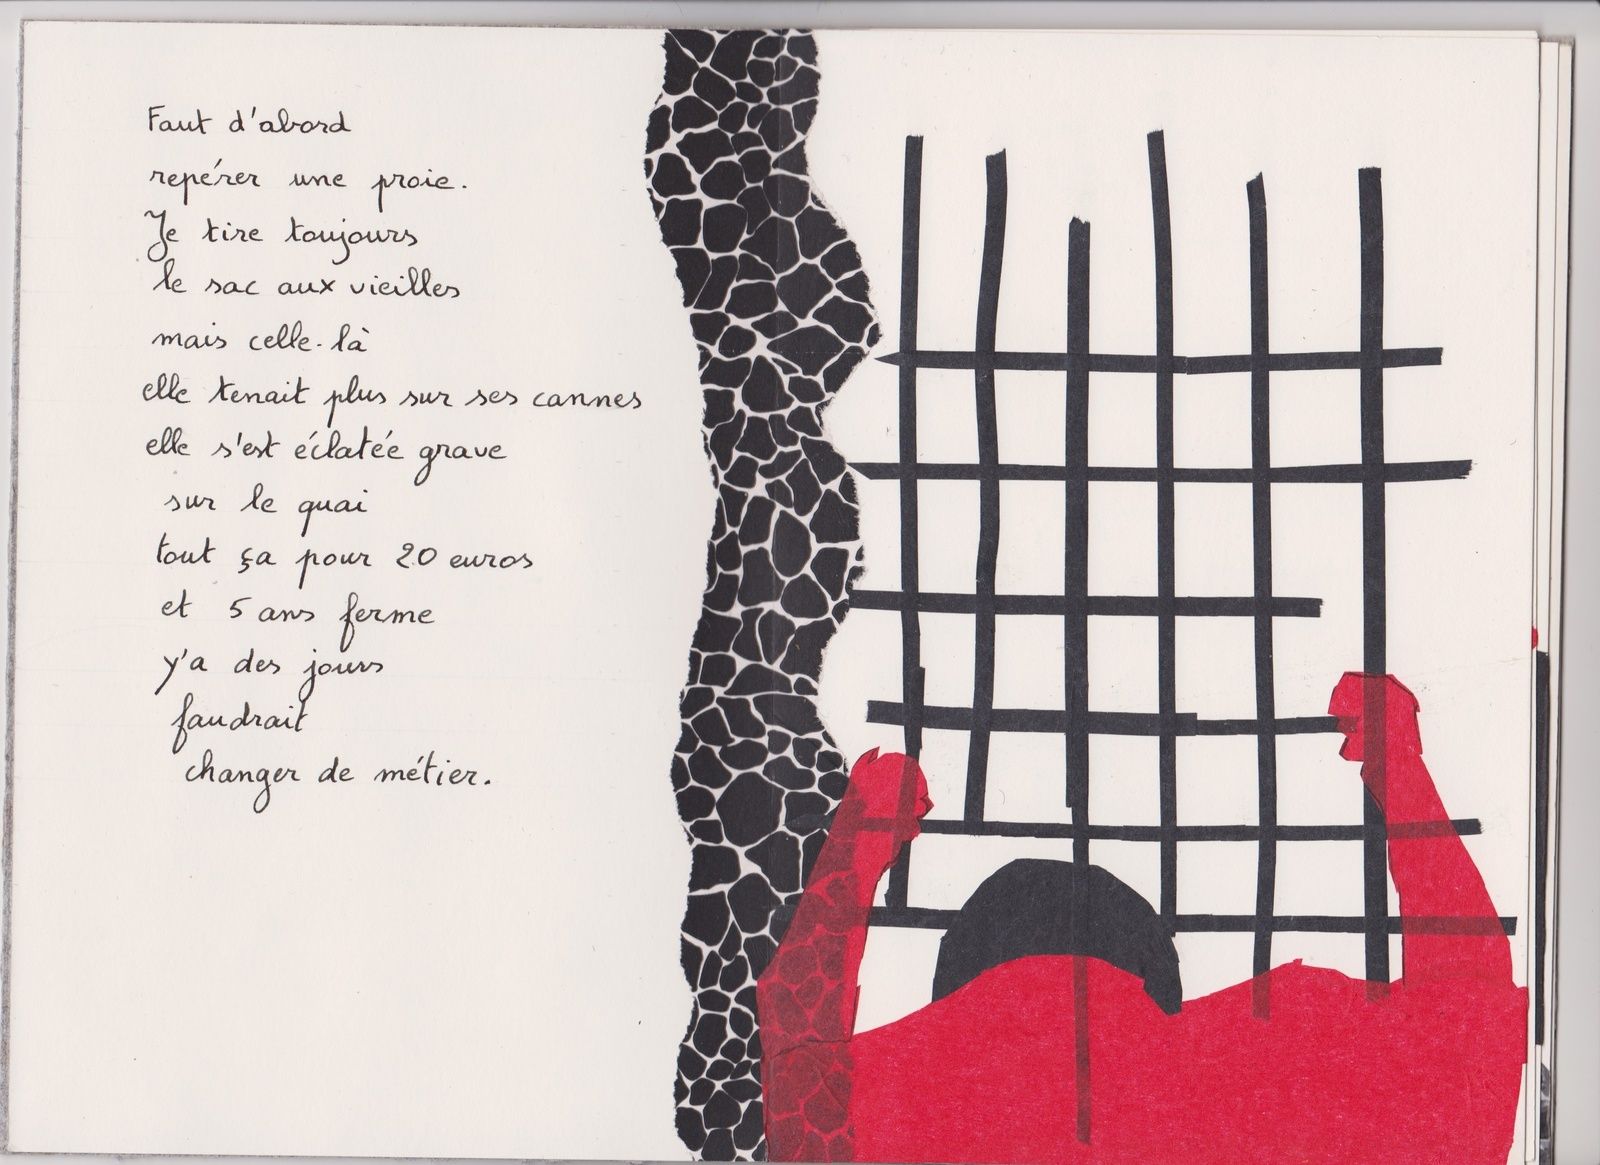 Faut d'abord
repérer une proie.
Je tire toujours
le sac aux vieilles
mais celle-là
elle tenait plus sur ses cannes
elle s'est éclatée grave
sur le quai
tout ça pour 20 euros
et 5 ans ferme
y'a des jours
faudrait
changer de métier.